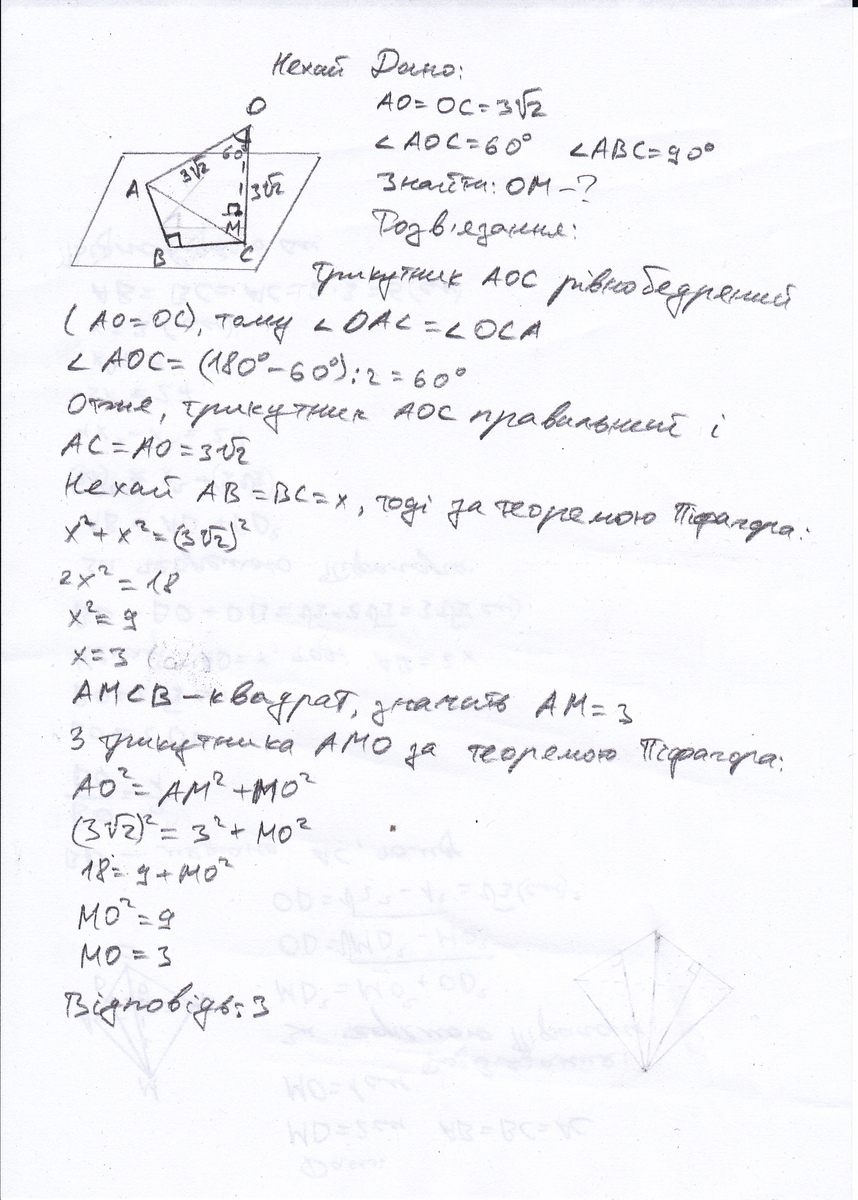 Нехай Дано:
AO = OC = 3√2
∠AOC = 60° ∠ABC = 90°
Знайти: OM - ?
Розв'язання:
O
60°
3√2
A
3√2
M
B
C
Трикутник AOC рівнобедрений
(AO = OC), тому ∠OAC = ∠OCA
∠AOC = (180° - 60°) : 2 = 60°
Отже, трикутник AOC правильний і
AC = AO = 3√2
Нехай AB = BC = x, тоді за теоремою Піфагора:
x² + x² = (3√2)²
2x² = 18
x² = 9
x = 3
AMCB - квадрат, значить AM = 3
З трикутника AMO за теоремою Піфагора:
AO² = AM² + MO²
(3√2)² = 3² + MO²
18 = 9 + MO²
MO² = 9
MO = 3
Відповідь: 3